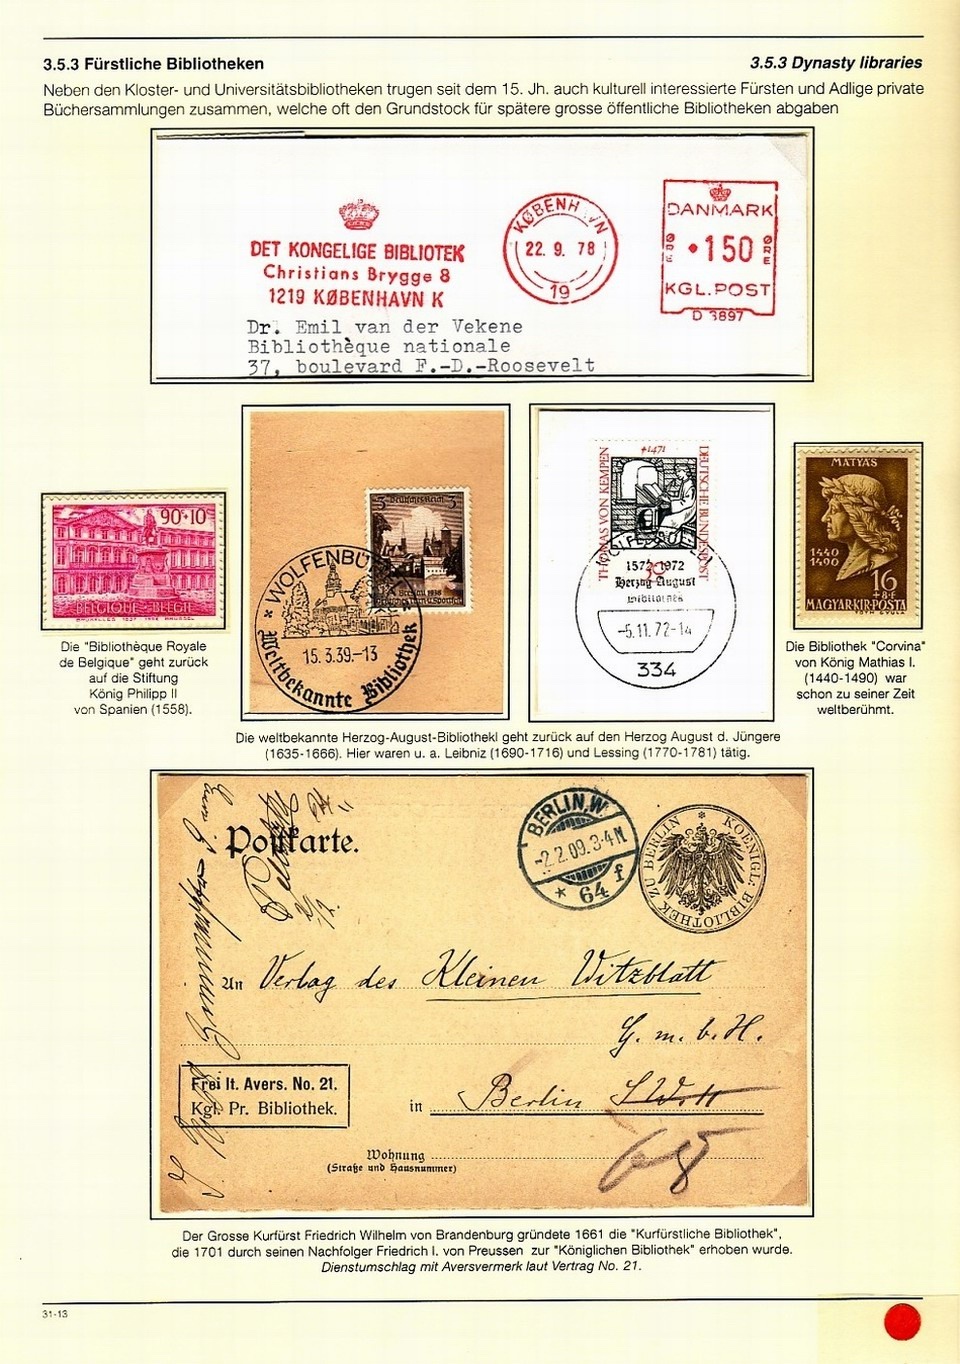 3.5.3 Fürstliche Bibliotheken
3.5.3 Dynasty libraries
Neben den Kloster- und Universitätsbibliotheken trugen seit dem 15. Jh. auch kulturell interessierte Fürsten und Adlige private
Büchersammlungen zusammen, welche oft den Grundstock für spätere grosse öffentliche Bibliotheken abgaben
DET KONGELIGE BIBLIOTEK
Christians Brygge 8
1219 KØBENHAVN K
KØBENH VN
22. 9. 78
19
DANMARK
ØRE 150 ØRE
KGL. POST
D 3897
Dr. Emil van der Vekene
Bibliothèque nationale
37, boulevard F.-D.-Roosevelt
90+10
BELGIQUE-BELGIË
Die "Bibliothèque Royale
de Belgique" geht zurück
auf die Stiftung
König Philipp II
von Spanien (1558).
3 Deutsches Reich 3
Breslau 1938
WOLFENBÜ
15.3.39.-13
Weltbekannte Bibliothek
+1471
THOMAS VON KEMPEN
DEUTSCHE BUNDESPOST
1572-1972
Herzog August
Bibliothek
-5.11.72-14
334
MATYAS
1440
1490
16
+8F
MAGYAR·KIR·POSTA
Die Bibliothek "Corvina"
von König Mathias I.
(1440-1490) war
schon zu seiner Zeit
weltberühmt.
Die weltbekannte Herzog-August-Bibliothekl geht zurück auf den Herzog August d. Jüngere
(1635-1666). Hier waren u. a. Leibniz (1690-1716) und Lessing (1770-1781) tätig.
Postkarte.
BERLIN.W.
-2.2.09.3-4N
* 64 f
KOENIGL: BIBLIOTHEK ZU BERLIN *
An Verlag des Kleinen Witzblatt
G. m. b. H.
Frei lt. Avers. No. 21.
Kgl. Pr. Bibliothek.
in Berlin
Wohnung
(Straße und Hausnummer)
Der Grosse Kurfürst Friedrich Wilhelm von Brandenburg gründete 1661 die "Kurfürstliche Bibliothek",
die 1701 durch seinen Nachfolger Friedrich I. von Preussen zur "Königlichen Bibliothek" erhoben wurde.
Dienstumschlag mit Aversvermerk laut Vertrag No. 21.
31-13